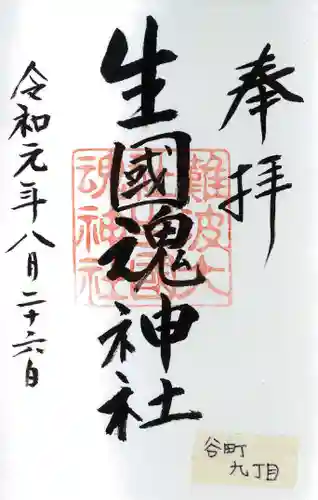 奉拝
生國魂神社
令和元年八月二十六日
難波大
社生國
魂神社
谷町
九丁目